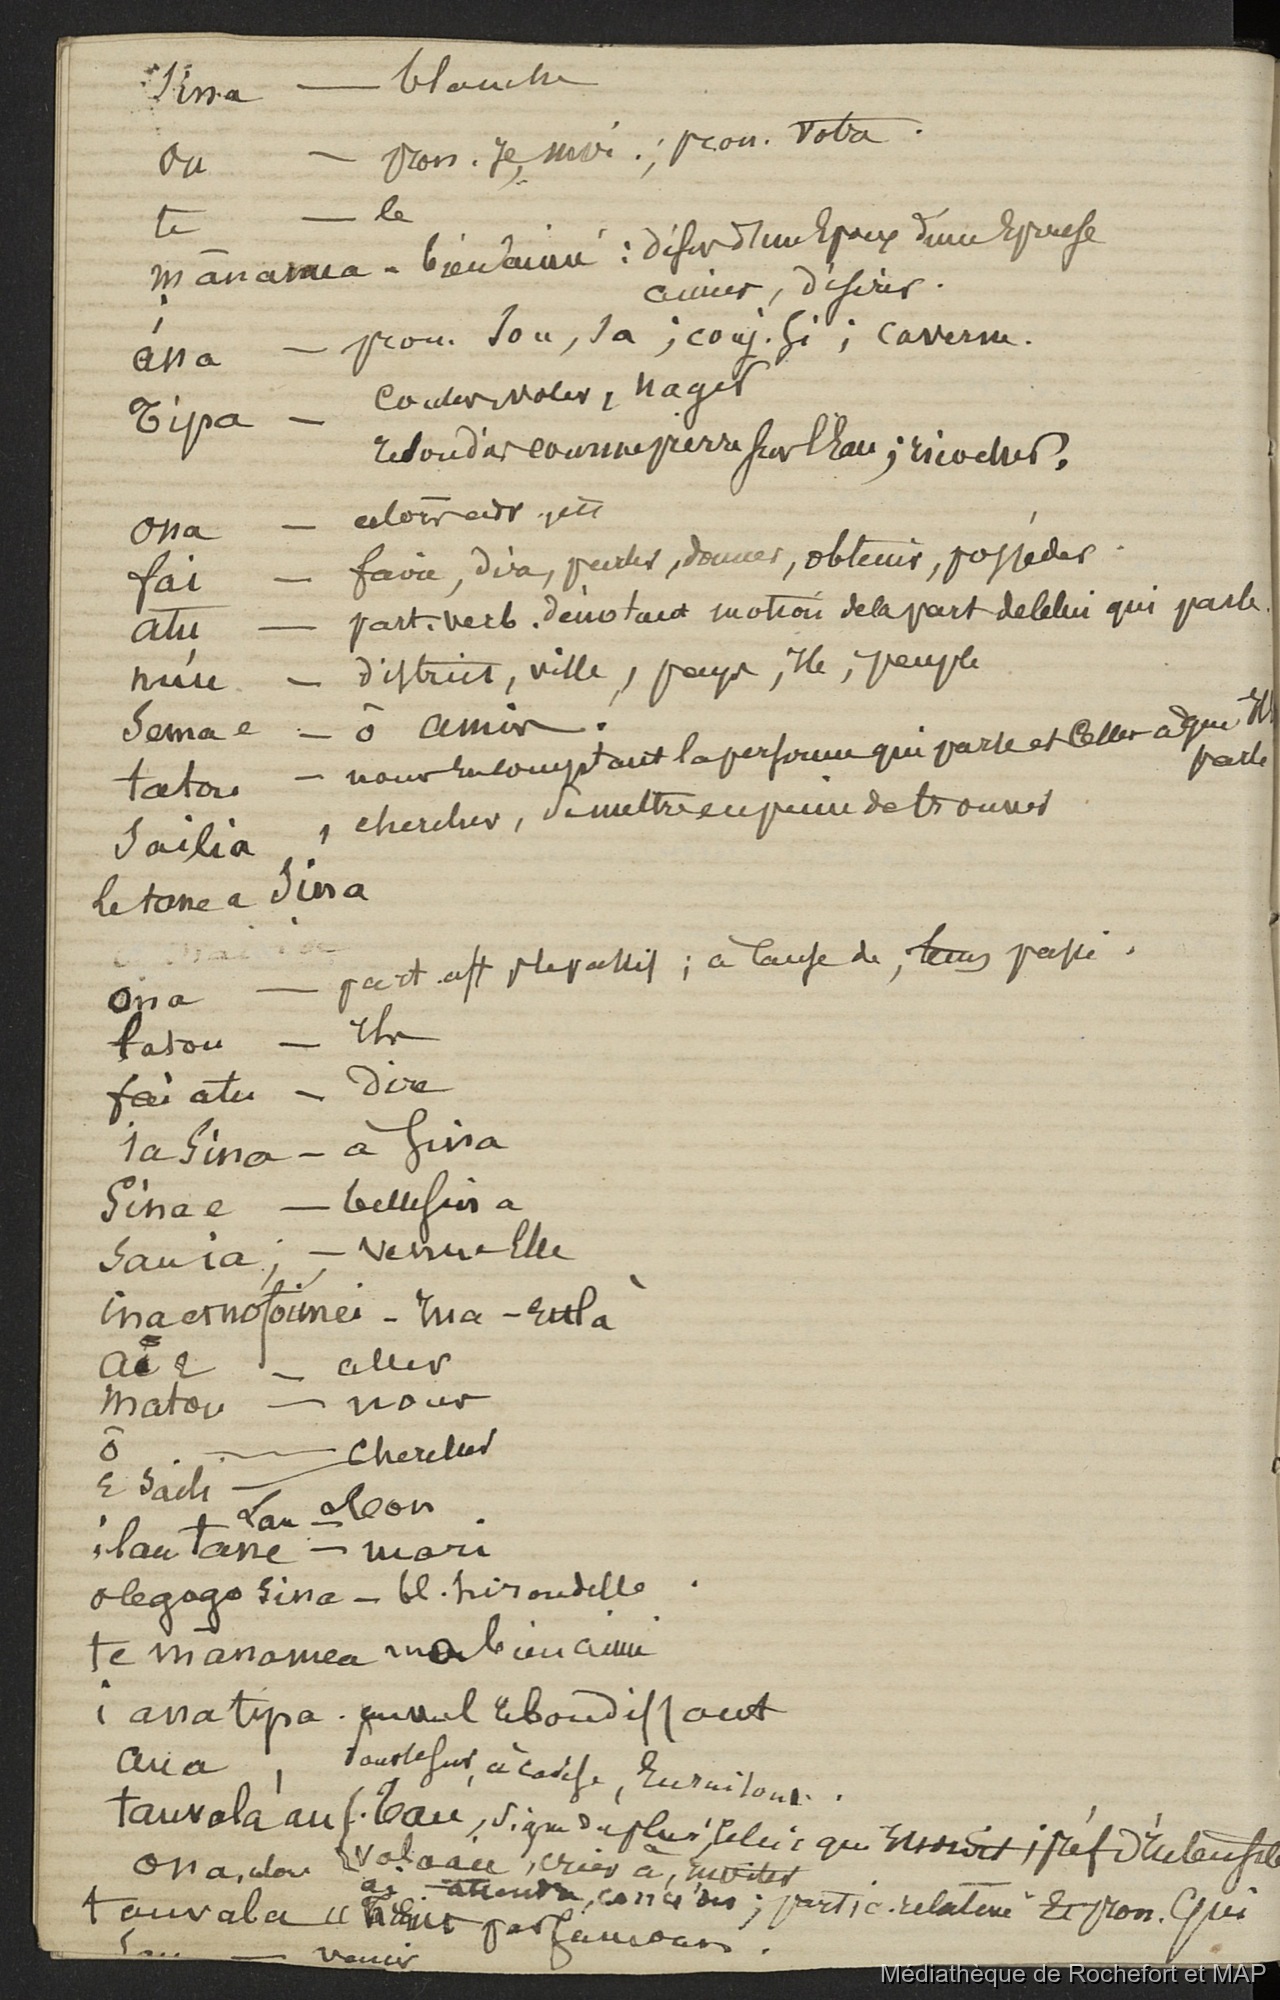 Sina — blanche
ou — pron. je, moi. ; pron. votre.
te — le
mānamea - bien aimé : désir d'un Epoux d'une Epouse
aimer, désirer.
i
āna — pron. son, sa ; conj. si ; caverne.
Tipa — couler, voler, nager
rebondir comme pierre sur l'Eau ; ricocher.
ona — alors adv.
fai — faire, dire, parler, donner, obtenir, posséder.
atu — part. verb. dénotant motion de la part de celui qui parle.
nuu — district, ville, pays, île, peuple
Soma e — ô amis.
tatou — nous en comptant la personne qui parle et celles à qui Il
parle
Sailia , chercher, se mettre en peine de trouver
le tane a Sina
ona — part. aff ; à cause de, passé.
latou — Ils
fai atu — Dire
ia Sina — à Sina
Sina e — belle Sina
Sau ia ; — venue Elle
ina - Ina - Est là
— aller
matou — nous
ō — chercher
e saili —
Lau — Leon
i lau tane — mari
o le gogo Sina — bl. hirondelle.
te mānamea mon bien aimé
i ana tipa. rebondissant
aua , à cause, En raison.
tauvala'au (. Tau, signe du pluriel, celui qui
ona, alou valaau, crier à, inviter
ai attendre, ; partic. relative Et pron. Qui
tauvalaau
Sau — venir
Médiathèque de Rochefort et MAP